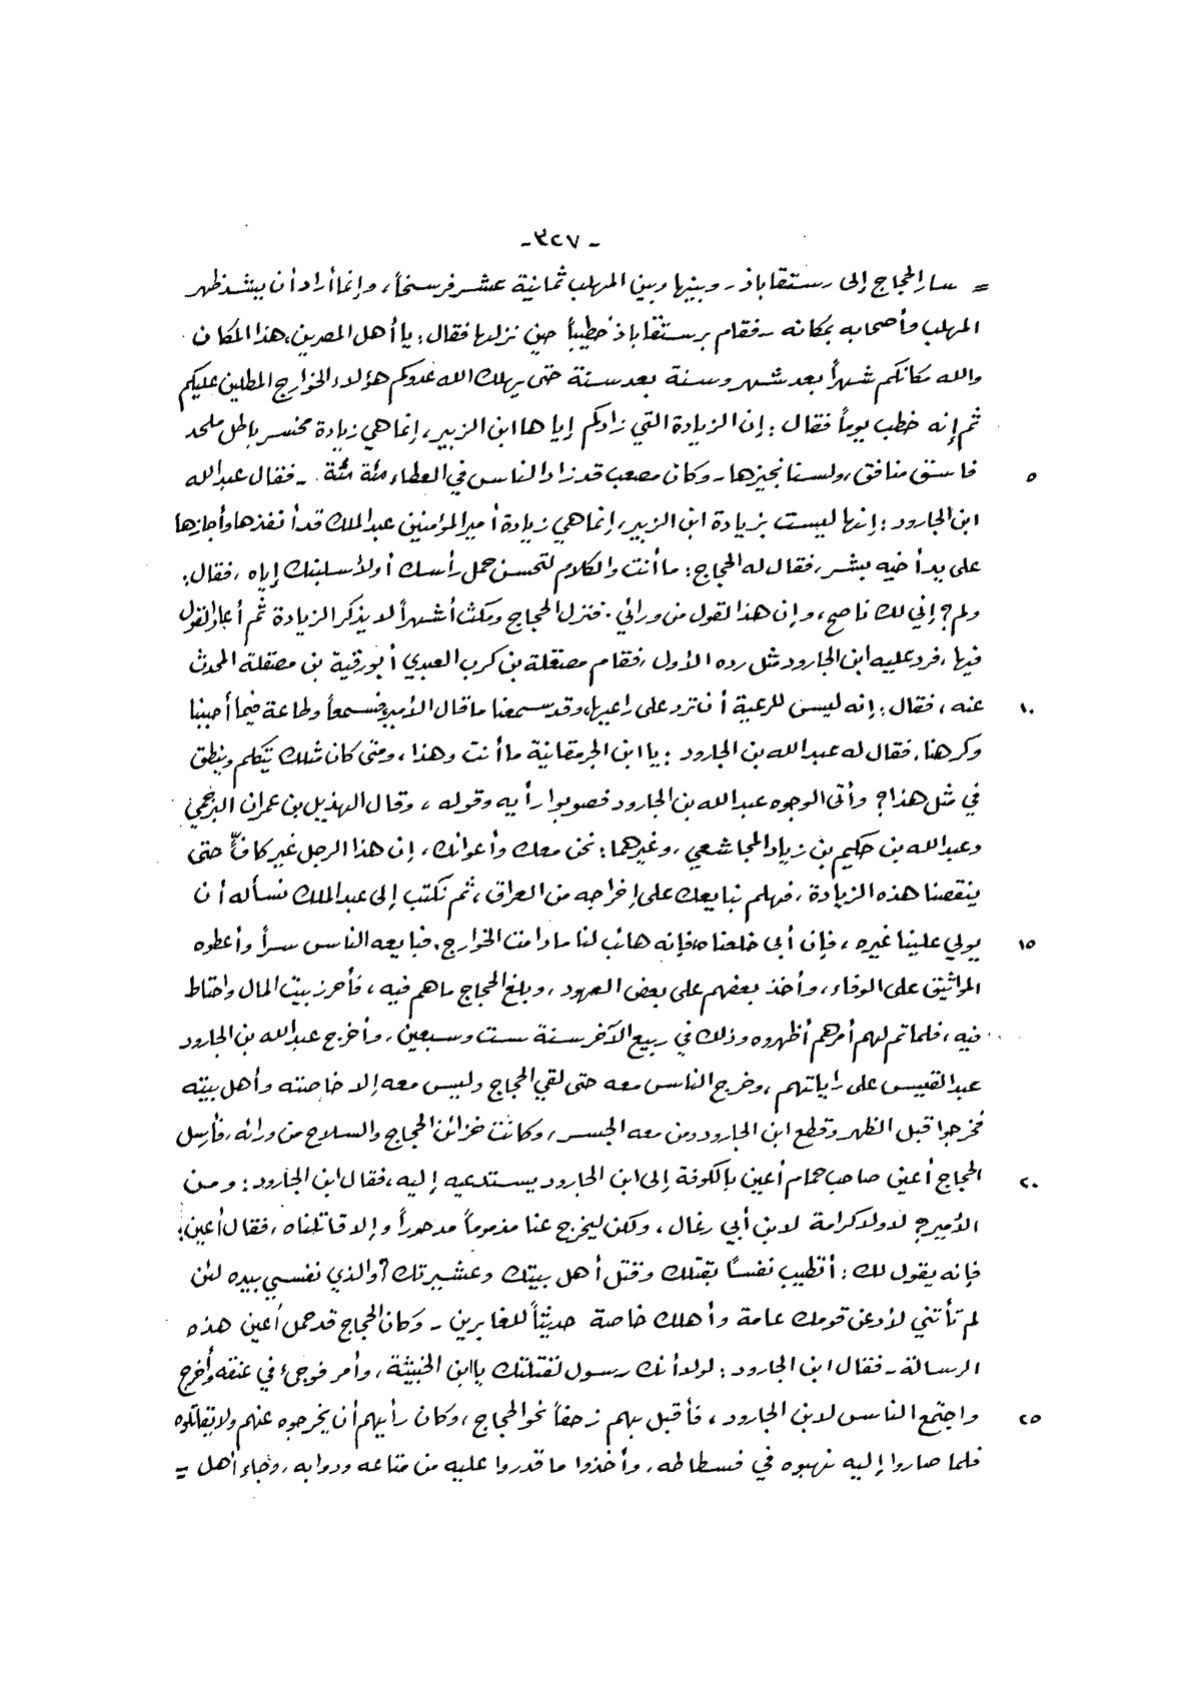 - ٣٢٧ -
= سار الحجاج إلى رستقاباذ - وبينها وبين المهلب ثمانية عشر فرسخاً، وإنما أراد أن يشد ظهر
المهلب وأصحابه بمكانه - فقام برستقاباذ خطيباً حين نزلها فقال: يا أهل المصرين، هذا المكان
والله مكانكم شهراً بعد شهر وسنة بعد سنة حتى يهلك الله عدوكم هؤلاء الخوارج المطلين عليكم
ثم إنه خطب يوماً فقال: إن الزيادة التي زادكم إياها ابن الزبير، إنما هي زيادة مخسر باطل ملحد
٥ فاسق منافق، ولسنا نجيزها - وكان مصعب قد زاد الناس في العطاء مئة مئة - فقال عبد الله
ابن الجارود: إنها ليست بزيادة ابن الزبير، إنما هي زيادة أمير المؤمنين عبد الملك قد أنفذها وأجازها
على يد أخيه بشر، فقال له الحجاج: ما أنت والكلام لتحسن حمل رأسك أو لأسلبنك إياه، فقال:
ولم؟ إني لك ناصح، وإن هذا لقول من ورائي. فنزل الحجاج ومكث أشهراً لا يذكر الزيادة ثم أعاد القول
فيها، فرد عليه ابن الجارود مثل رده الأول، فقام مصقلة بن كرب العبدي أبو رقية بن مصقلة المحدث
١٠ عنه، فقال: إنه ليس للرعية أن ترد على راعيها، وقد سمعنا ما قال الأمير، فسمعاً وطاعة فيما أحببنا
وكرهنا. فقال له عبد الله بن الجارود: يا ابن الجرمقانية ما أنت وهذا، ومتى كان مثلك يتكلم وينطق
في مثل هذا؟ وأتى الوجوه عبد الله بن الجارود فصوبوا رأيه وقوله، وقال الهذيل بن عمران البرجمي
وعبد الله بن حكيم بن زياد المجاشعي، وغيرهما: نحن معك وأعوانك، إن هذا الرجل غير كافٍّ حتى
ينقصنا هذه الزيادة، فهلم نبايعك على إخراجه من العراق، ثم نكتب إلى عبد الملك نسأله أن
١٥ يولي علينا غيره، فإن أبى خلعناه، فإنه هائب لنا ما دامت الخوارج. فبايعه الناس سراً وأعطوه
المواثيق على الوفاء، وأخذ بعضهم على بعض العهود، وبلغ الحجاج ما هم فيه، فأحرز بيت المال واحتاط
فيه، فلما تم لهم أمرهم أظهروه وذلك في ربيع الآخر سنة ست وسبعين، وأخرج عبد الله بن الجارود
عبد القيس على راياتهم، وخرج الناس معه حتى لقي الحجاج وليس معه إلا خاصته وأهل بيته
فخرجوا قبل الظهر وقطع ابن الجارود ومن معه الجسر، وكانت خزائن الحجاج والسلاح من ورائه، فأرسل
٢٠ الحجاج أعين صاحب حمام أعين بالكوفة إلى ابن الجارود يستدعيه إليه، فقال ابن الجارود: ومن
الأمير؟ لا ولا كرامة لابن أبي رغال، ولكن ليخرج عنا مذموماً مدحوراً وإلا قاتلناه، فقال أعين:
فإنه يقول لك: أتطيب نفساً بقتلك وقتل أهل بيتك وعشيرتك؟ والذي نفسي بيده لئن
لم تأتني لأدعن قومك عامة وأهلك خاصة حديثاً للغابرين - وكان الحجاج قد حمل أعين هذه
الرسالة - فقال ابن الجارود: لولا أنك رسول لقتلتك يا ابن الخبيثة، وأمر فوجئ في عنقه وأخرج
٢٥ واجتمع الناس لابن الجارود، فأقبل بهم زحفاً نحو الحجاج، وكان رأيهم أن يخرجوه عنهم ولا يقاتلوه
فلما صاروا إليه نهبوه في فسطاطه، وأخذوا ما قدروا عليه من متاعه ودوابه، وجاء أهل =